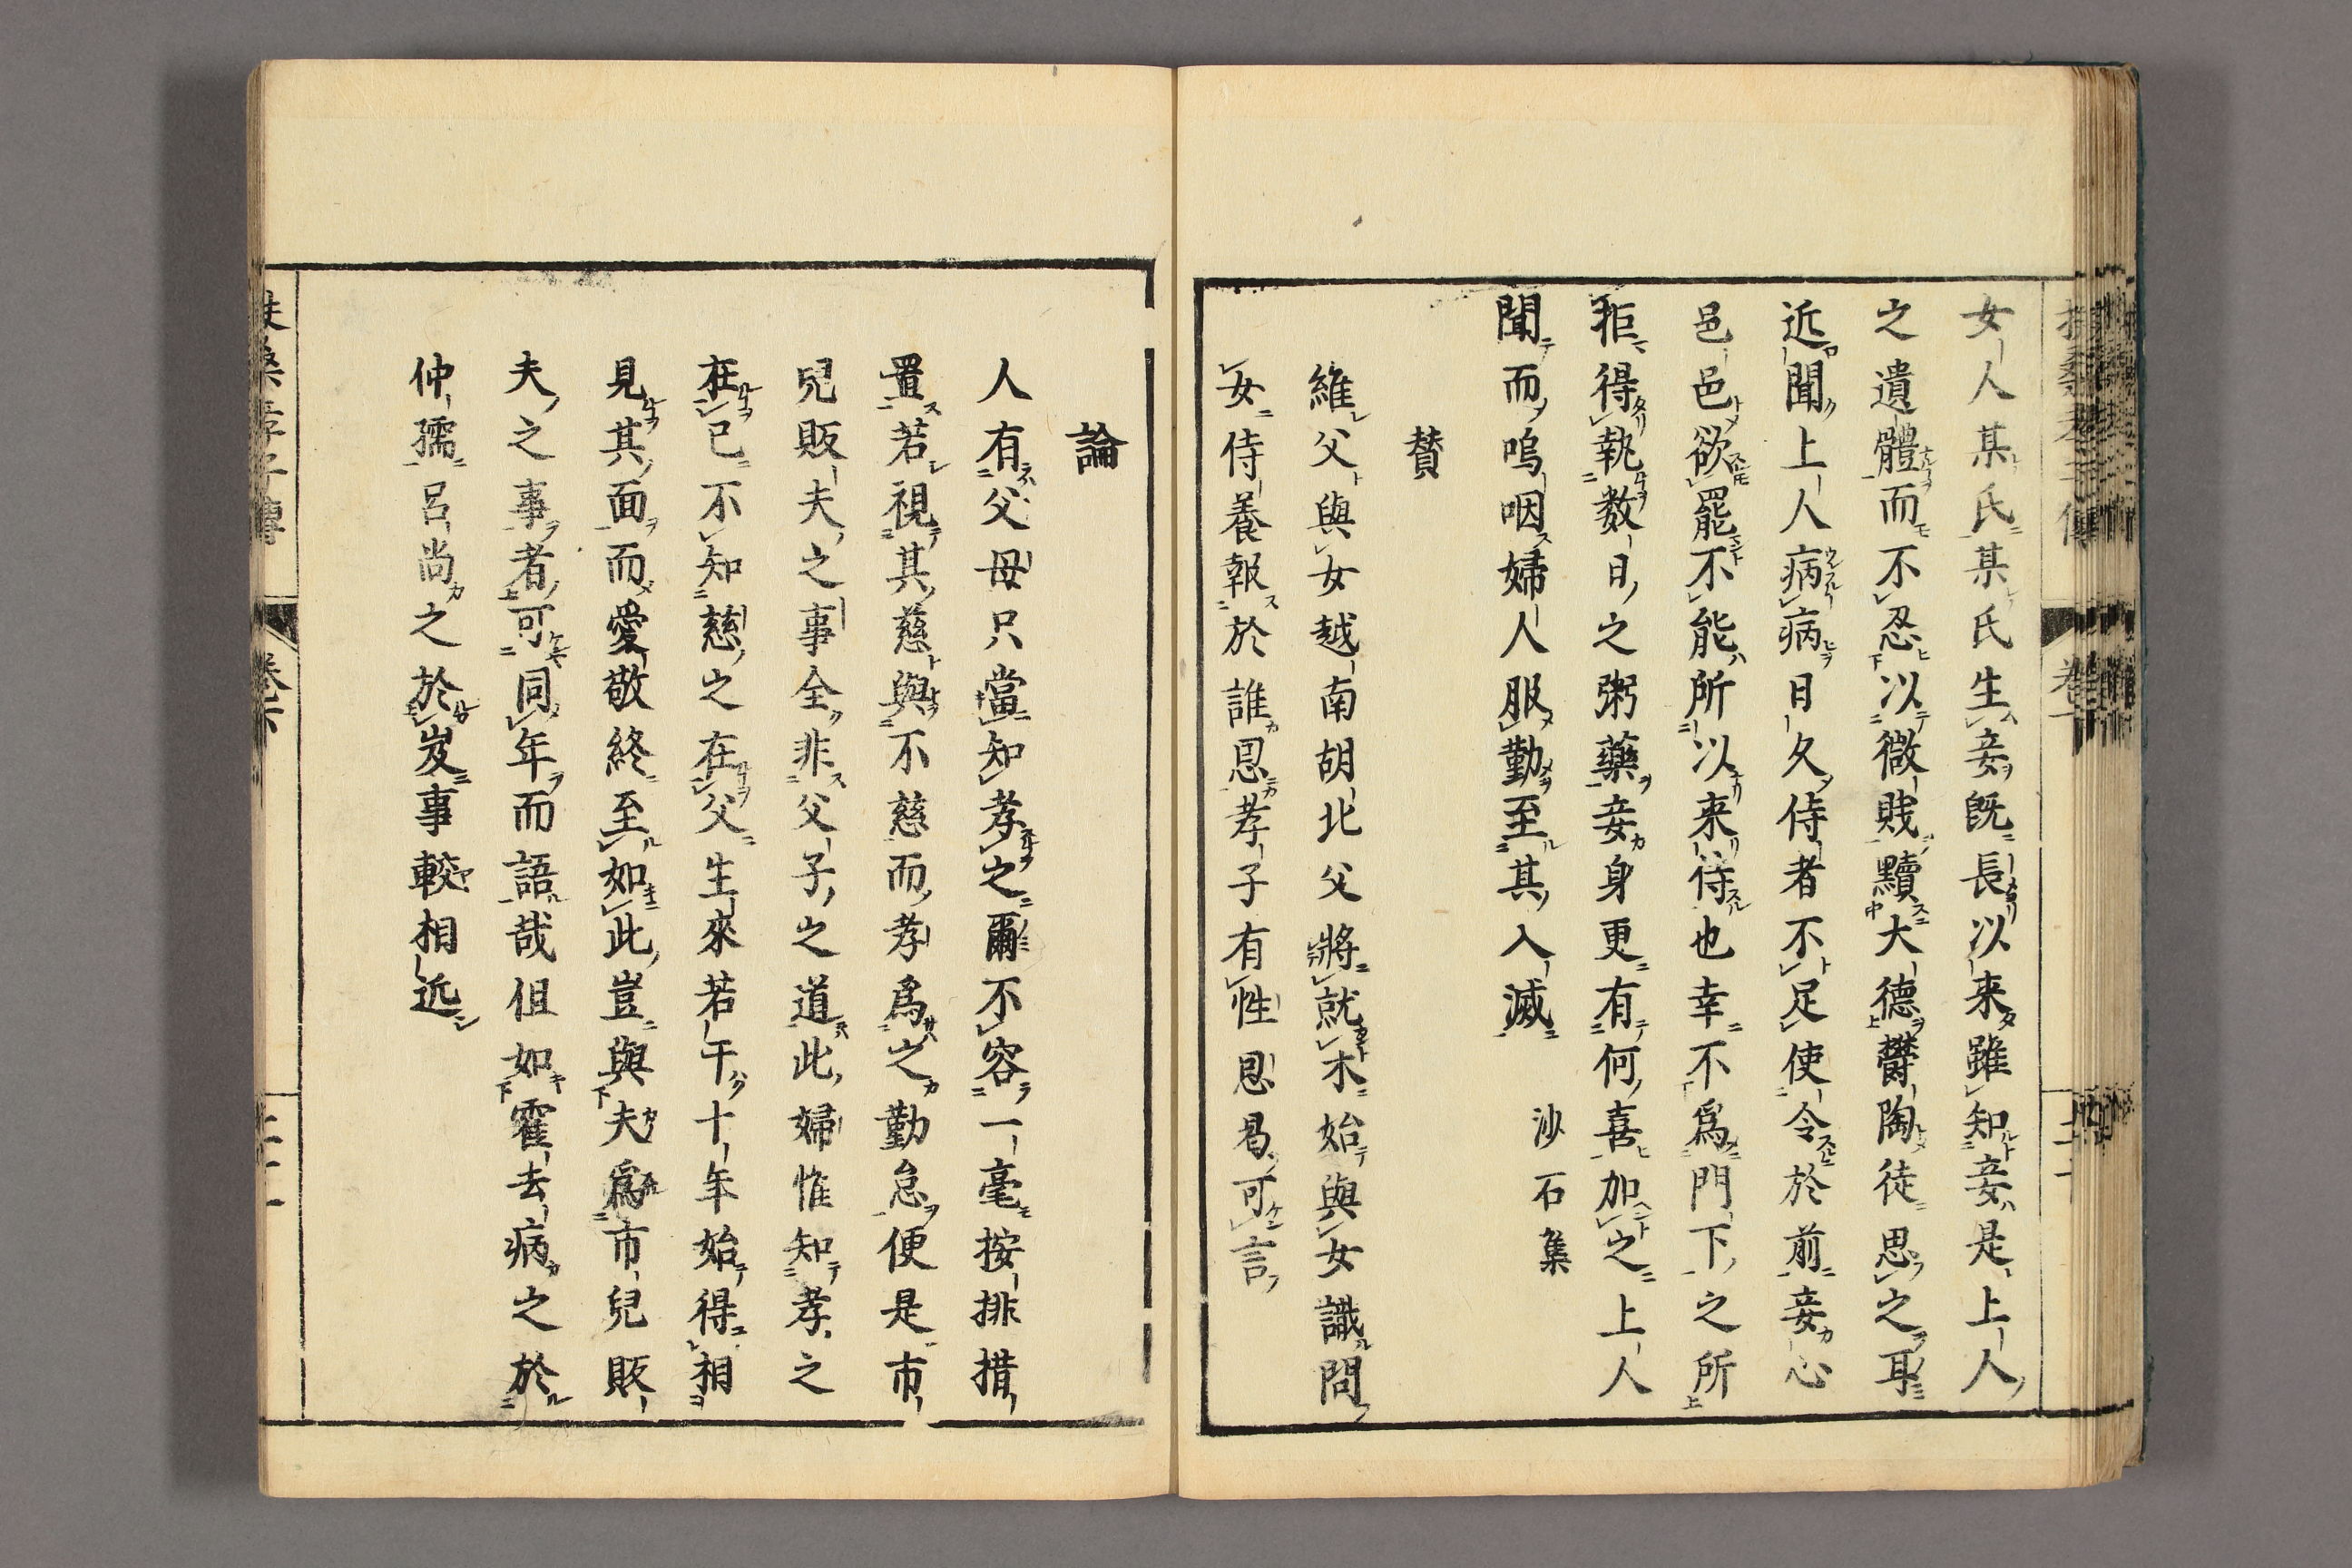 女人某氏某氏生妾既長以来雖知妾是上人
之遺體而不忍以微賤黷大德欝陶徒思之耳
近聞上人病病日久侍者不足使令於前妾心
邑邑欲罷不能所以来侍也幸不為門下之所
拒得執数日之粥藥妾身更有何喜加之上人
聞而嗚咽婦人服勤至其入滅
沙石集
賛
維父與女越南胡北父將就木始與女識問
女侍養報於誰恩孝子有性恩曷可言
論
人有父母只當知孝之爾不容一毫按排措
置若視其慈與不慈而孝為之勤怠便是市
兒販夫之事全非父子之道此婦惟知孝之
在己不知慈之在父生來若干十年始得相
見其面而愛敬終至如此豈與夫為市兒販
夫之事者可同年而語哉但如霍去病之於
仲孺呂尚之於岌事較相近
扶桑孝子傳
卷下
二十一